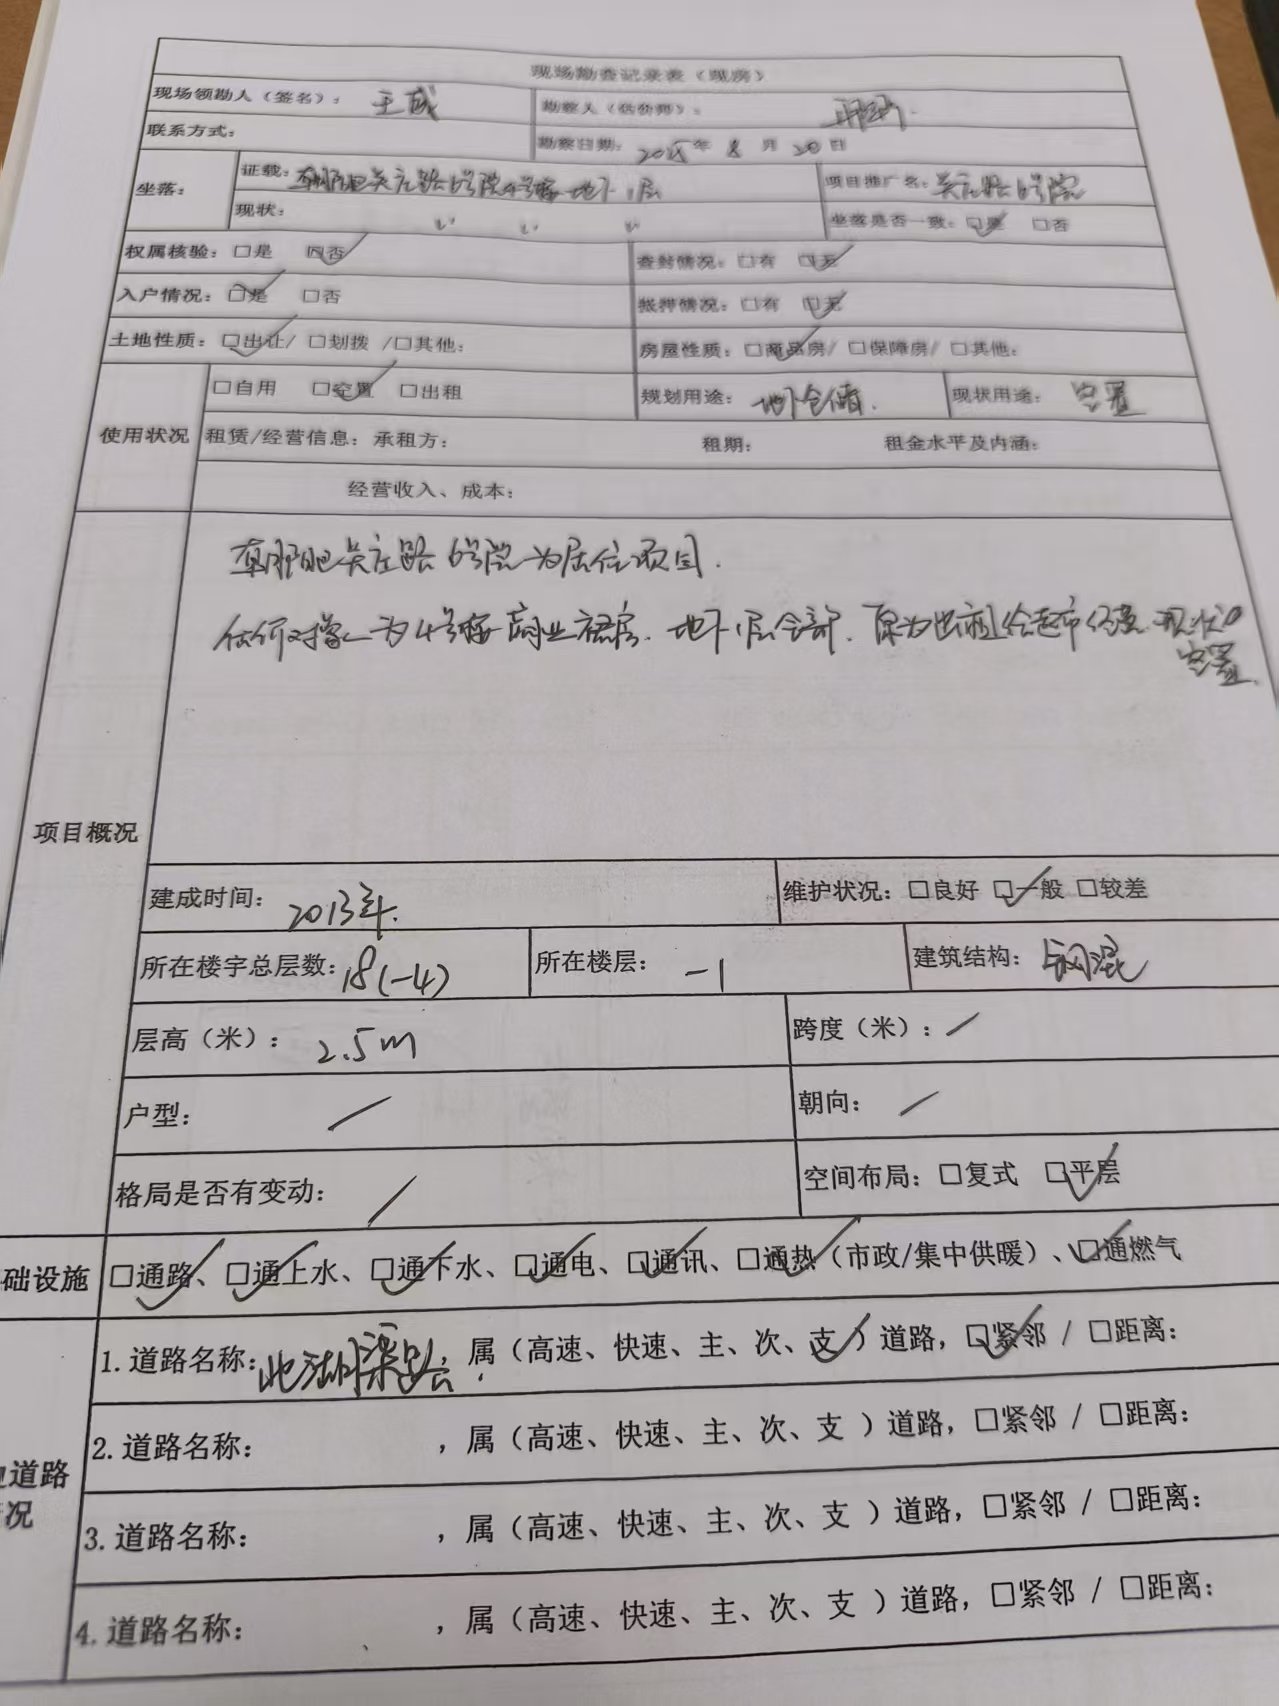 现场勘查记录表（现房）
现场领勘人（签名）： 王成 勘察人（估价师）：
联系方式： 勘察日期： 年 8 月 20 日
坐落： 证载：朝阳区吴庄路6号院4号楼地下1层 项目推广名：吴庄路6号院
现状： 〃 〃 〃 坐落是否一致：☑是 □否
权属核验：□是 ☑否 查封情况：□有 ☑无
入户情况：☑是 □否 抵押情况：□有 ☑无
土地性质：☑出让/ □划拨 /□其他： 房屋性质：☑商品房/ □保障房/ □其他：
使用状况 □自用 ☑空置 □出租 规划用途： 地下仓储. 现状用途： 空置
租赁/经营信息：承租方： 租期： 租金水平及内涵：
经营收入、成本：
朝阳区吴庄路6号院为居住项目.
估价对象为4号楼商业裙房.地下1层仓储.原为出租给超市经营.现状
空置.
项目概况
建成时间： 2013年. 维护状况：□良好 ☑一般 □较差
所在楼宇总层数：18(-4) 所在楼层： -1 建筑结构：钢混
层高（米）： 2.5m 跨度（米）：/
户型： / 朝向： /
格局是否有变动： / 空间布局：□复式 ☑平层
础设施 ☑通路、☑通上水、☑通下水、☑通电、☑通讯、☑通热（市政/集中供暖）、☑通燃气
1.道路名称： ，属（高速、快速、主、次、支✓）道路，☑紧邻 / □距离：
2.道路名称： ，属（高速、快速、主、次、支 ）道路，□紧邻 / □距离：
道路
况
3.道路名称： ，属（高速、快速、主、次、支 ）道路，□紧邻 / □距离：
4.道路名称： ，属（高速、快速、主、次、支 ）道路，□紧邻 / □距离：